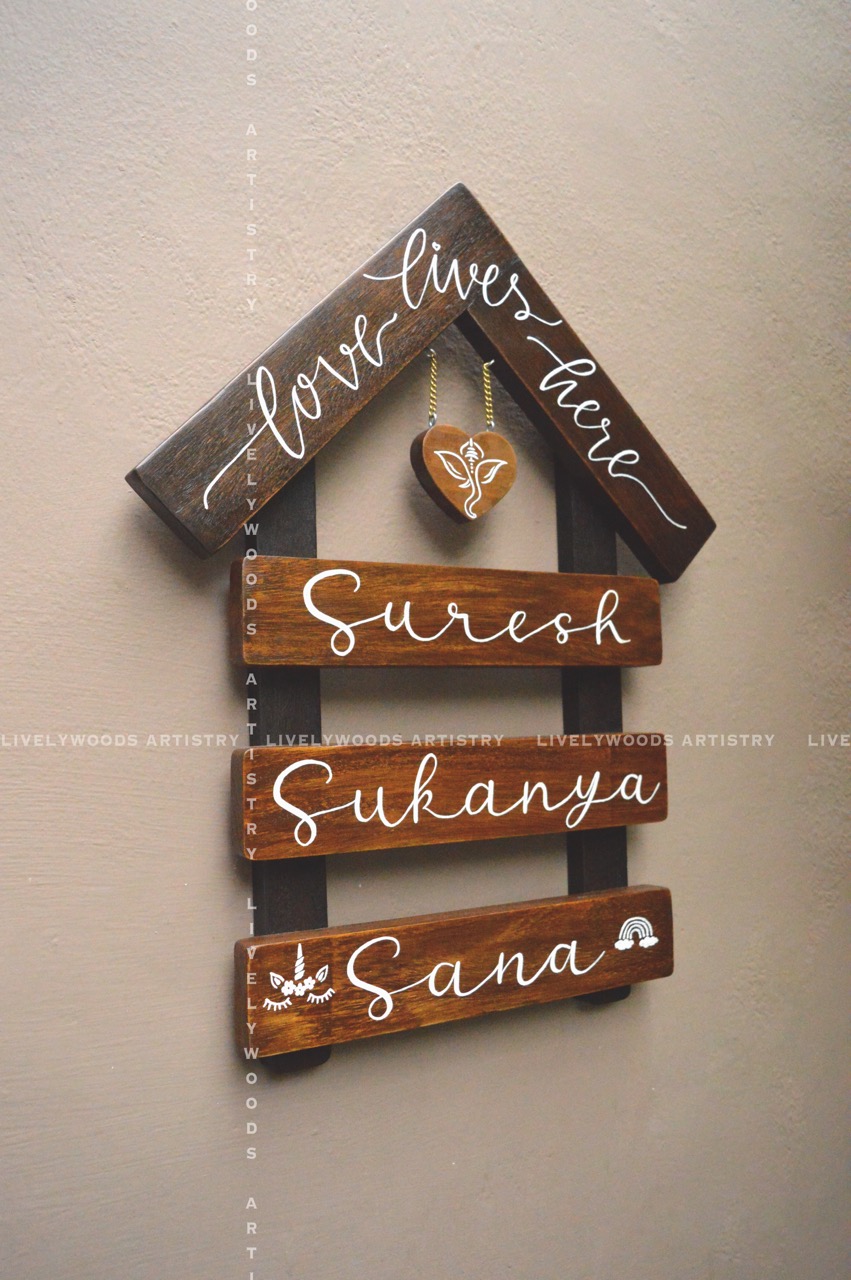 love lives here
Suresh
Sukanya
Sana
LIVELYWOODS ARTISTRY LIVELYWOODS ARTISTRY LIVELYWOODS ARTISTRY LIVE
OODS ARTISTRY LIVELYWOODS ARTISTRY LIVELYWOODS ARTI